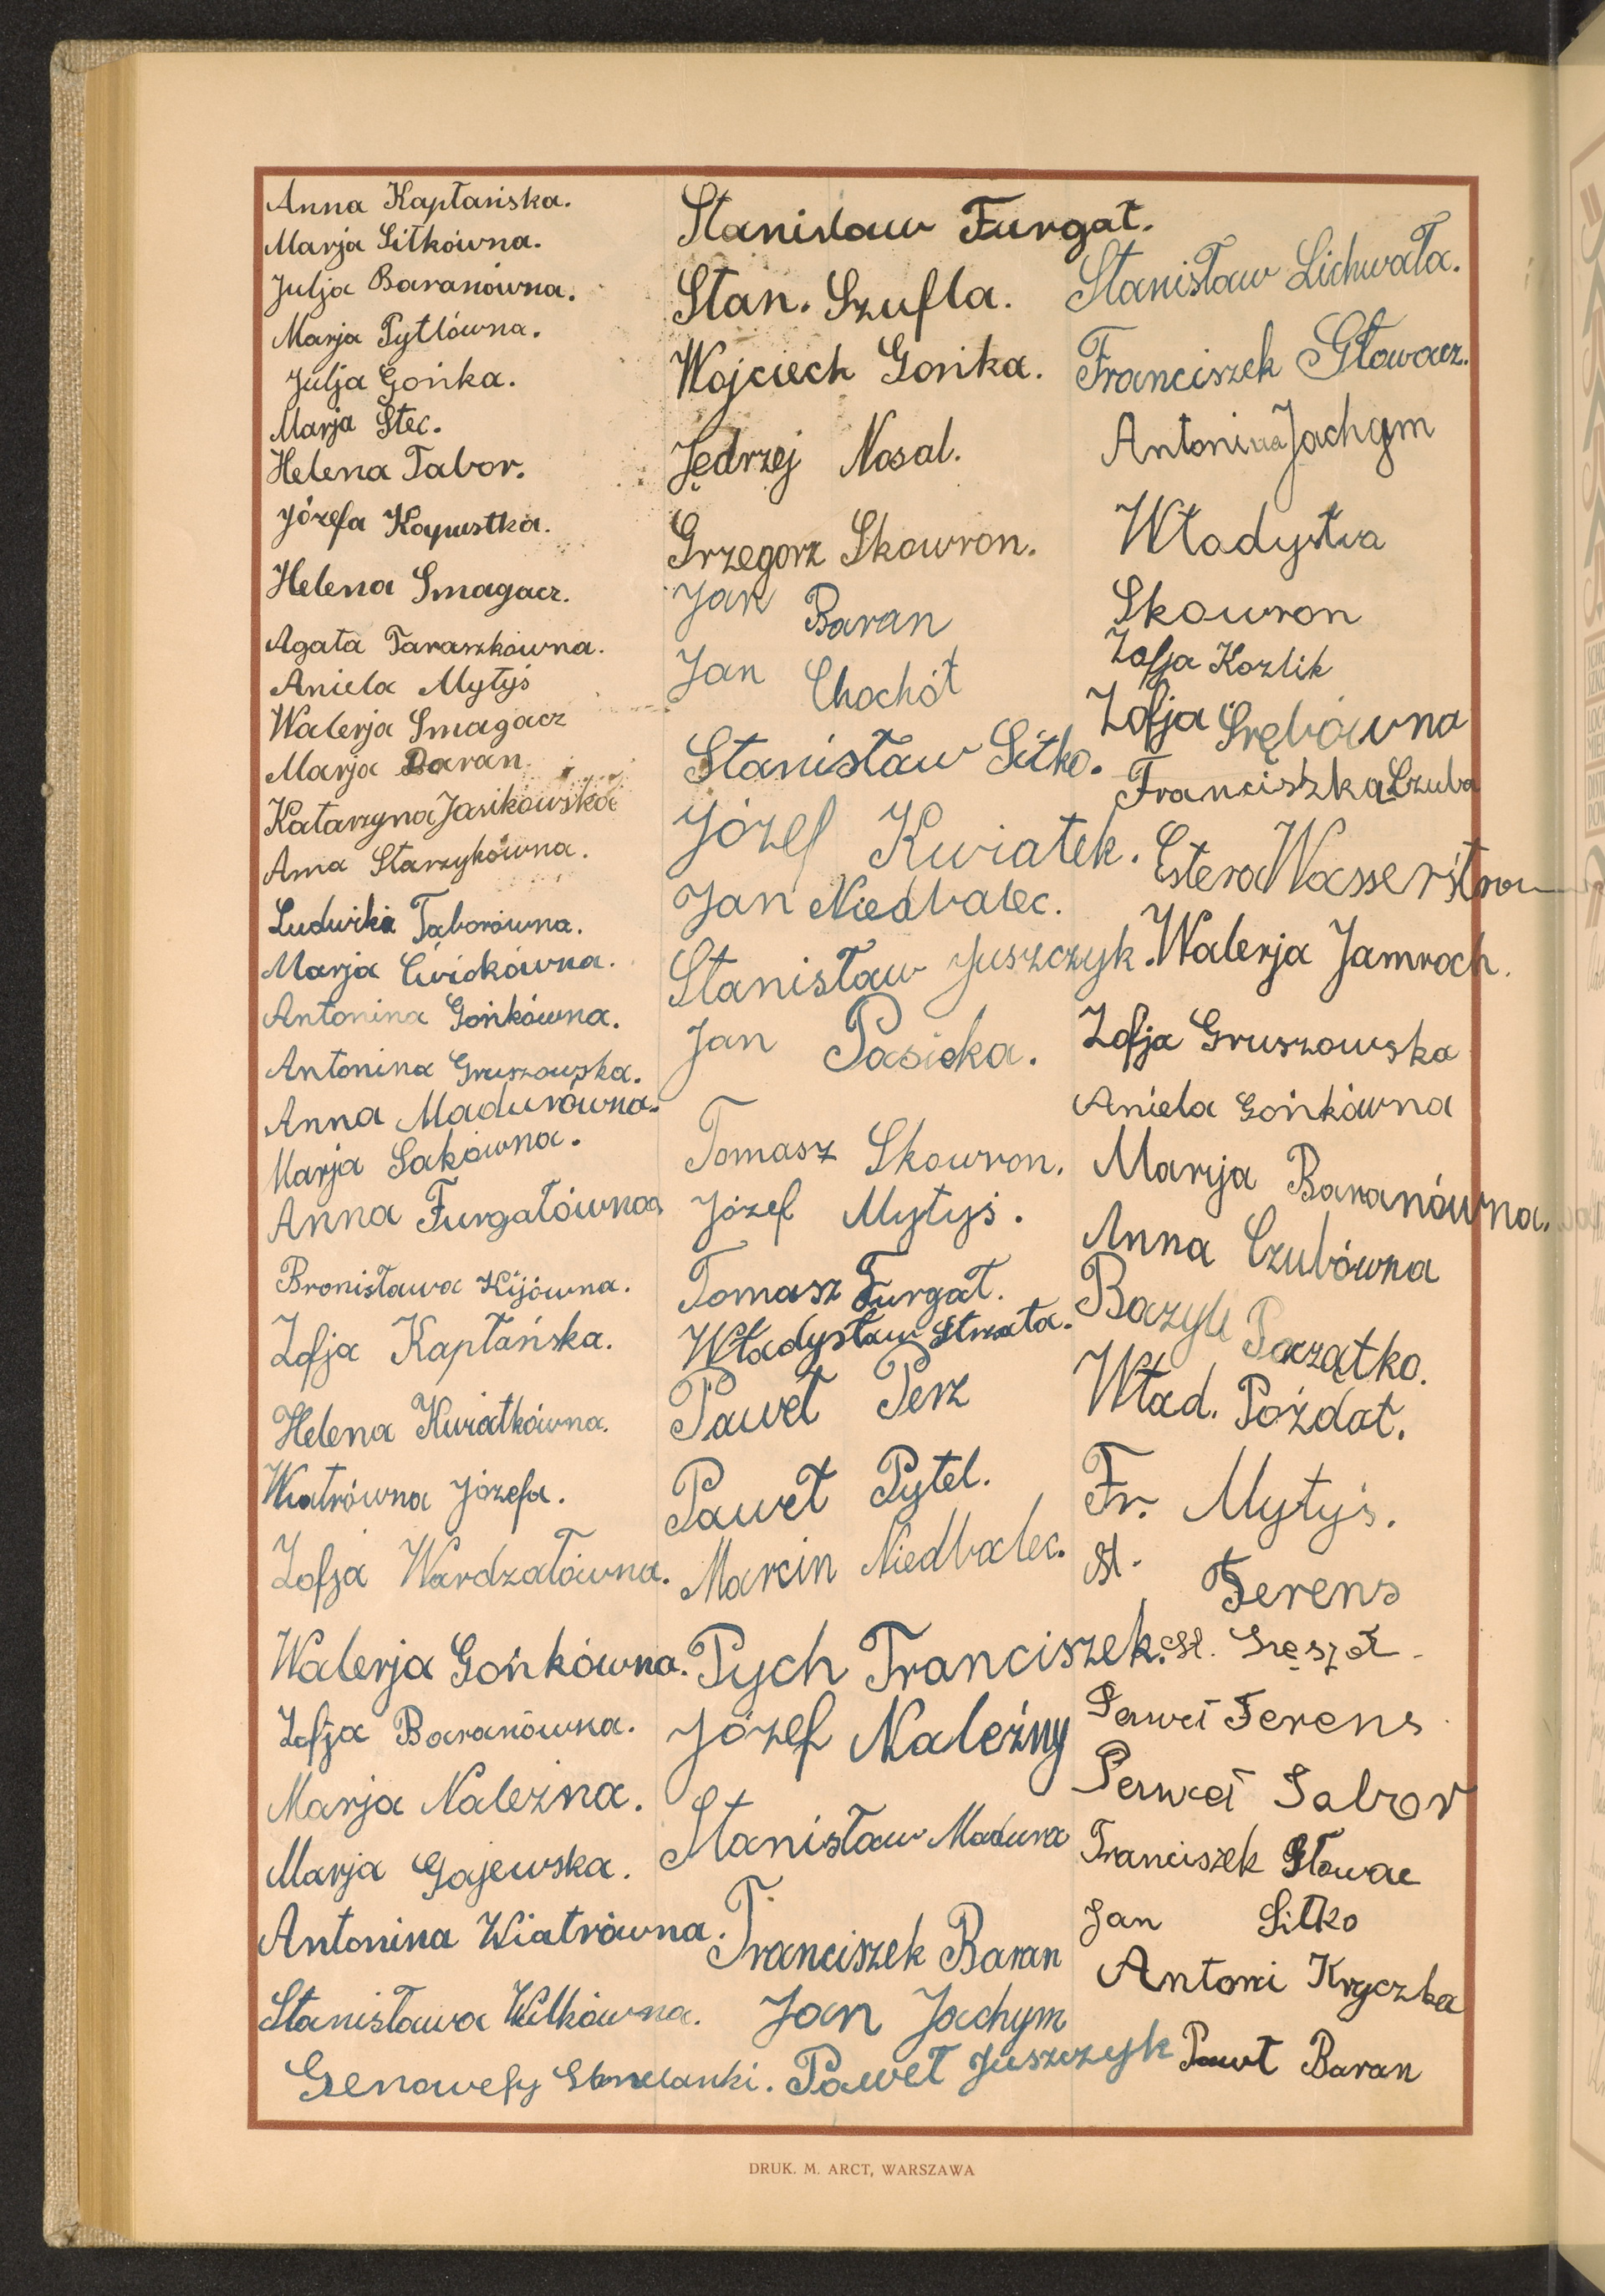 Anna Kapłańska.
Marja Sitkówna.
Julja Baranówna.
Marja Pytlówna.
Julja Gońka.
Marja Stec.
Helena Tabor.
Józefa Kapustka.
Helena Smagacz.
Agata Taraszkówna.
Aniela Mytyś
Walerja Smagacz
Marja Baran.
Katarzyna Jasikowska
Anna Starzykówna.
Ludwika Taborówna.
Marja Ćwiokówna.
Antonina Gońkówna.
Antonina Gruszowska.
Anna Madurówna.
Marja Sakówna.
Anna Furgałówna
Bronisława Kijówna.
Zofja Kapłańska.
Helena Kwiatkówna.
Wiatrówna Józefa.
Zofja Wardzałówna.
Walerja Gońkówna.
Zofja Baranówna.
Marja Należna.
Marja Gajewska.
Antonina Wiatrówna.
Stanisława Wilkówna.
Genowefy
Stanisław Furgał.
Stan. Szufla.
Wojciech Gońka.
Jędrzej Nosal.
Grzegorz Skowron.
Jan Baran
Jan Chochół
Stanisław Sitko.
Józef Kwiatek.
Jan Niedbalec.
Stanisław Juszczyk.
Jan Pasieka.
Tomasz Skowron.
Józef Mytyś.
Tomasz Furgał.
Władysław Strzała.
Paweł Perz
Paweł Pytel.
Marcin Niedbalec.
Pych Franciszek.
Józef Należny
Stanisław Madura
Franciszek Baran
Jan Jachym
Paweł Juszczyk
Stanisław Lichwała.
Franciszek Głowacz.
Antonina Jachym
Władysłwa
Skowron
Zofja Kozlik
Zofja Srębówna
Franciszka Czuba
Estera Wasserstrom
Walerja Jamroch.
Zofja Gruszowska
Aniela Gońkówna
Marija Baranówna.
Anna Czubówna
Bazyli Początko.
Wład. Poździał.
Fr. Mytyś.
St. Ferens
St. Gręszel
Paweł Ferens
Paweł Tabor
Franciszek Głowac
Jan Sitko
Antoni Kryczka
Pawł Baran
DRUK. M. ARCT, WARSZAWA